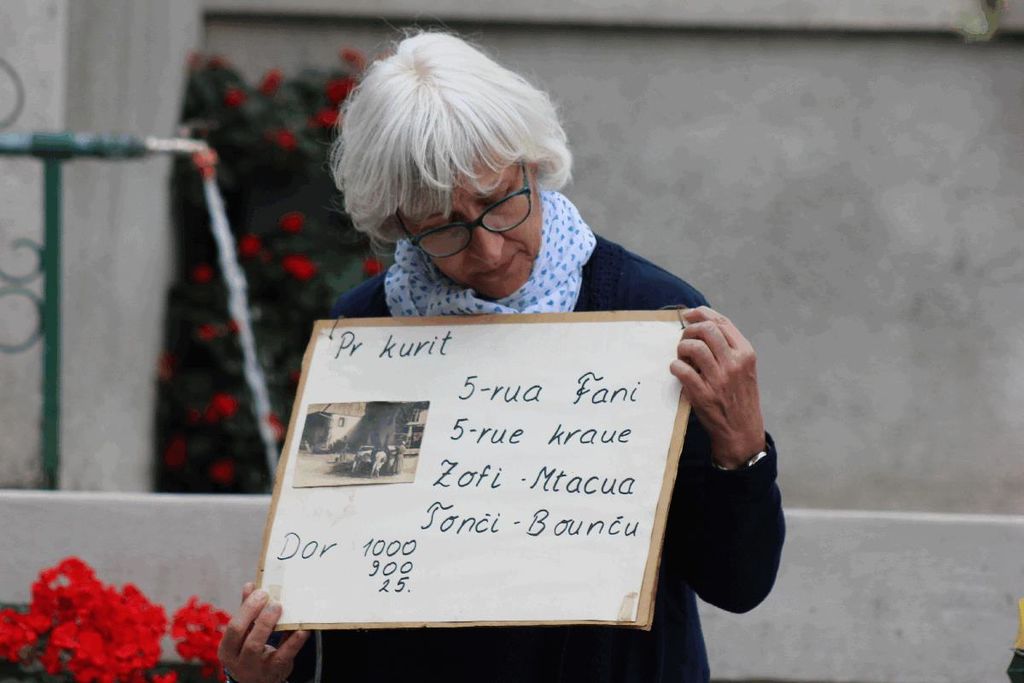 Pr kurit
5-rua Fani
5-rue kraue
Zofi - Mtacua
Tonči - Bounču
Dor 1000
900
25.